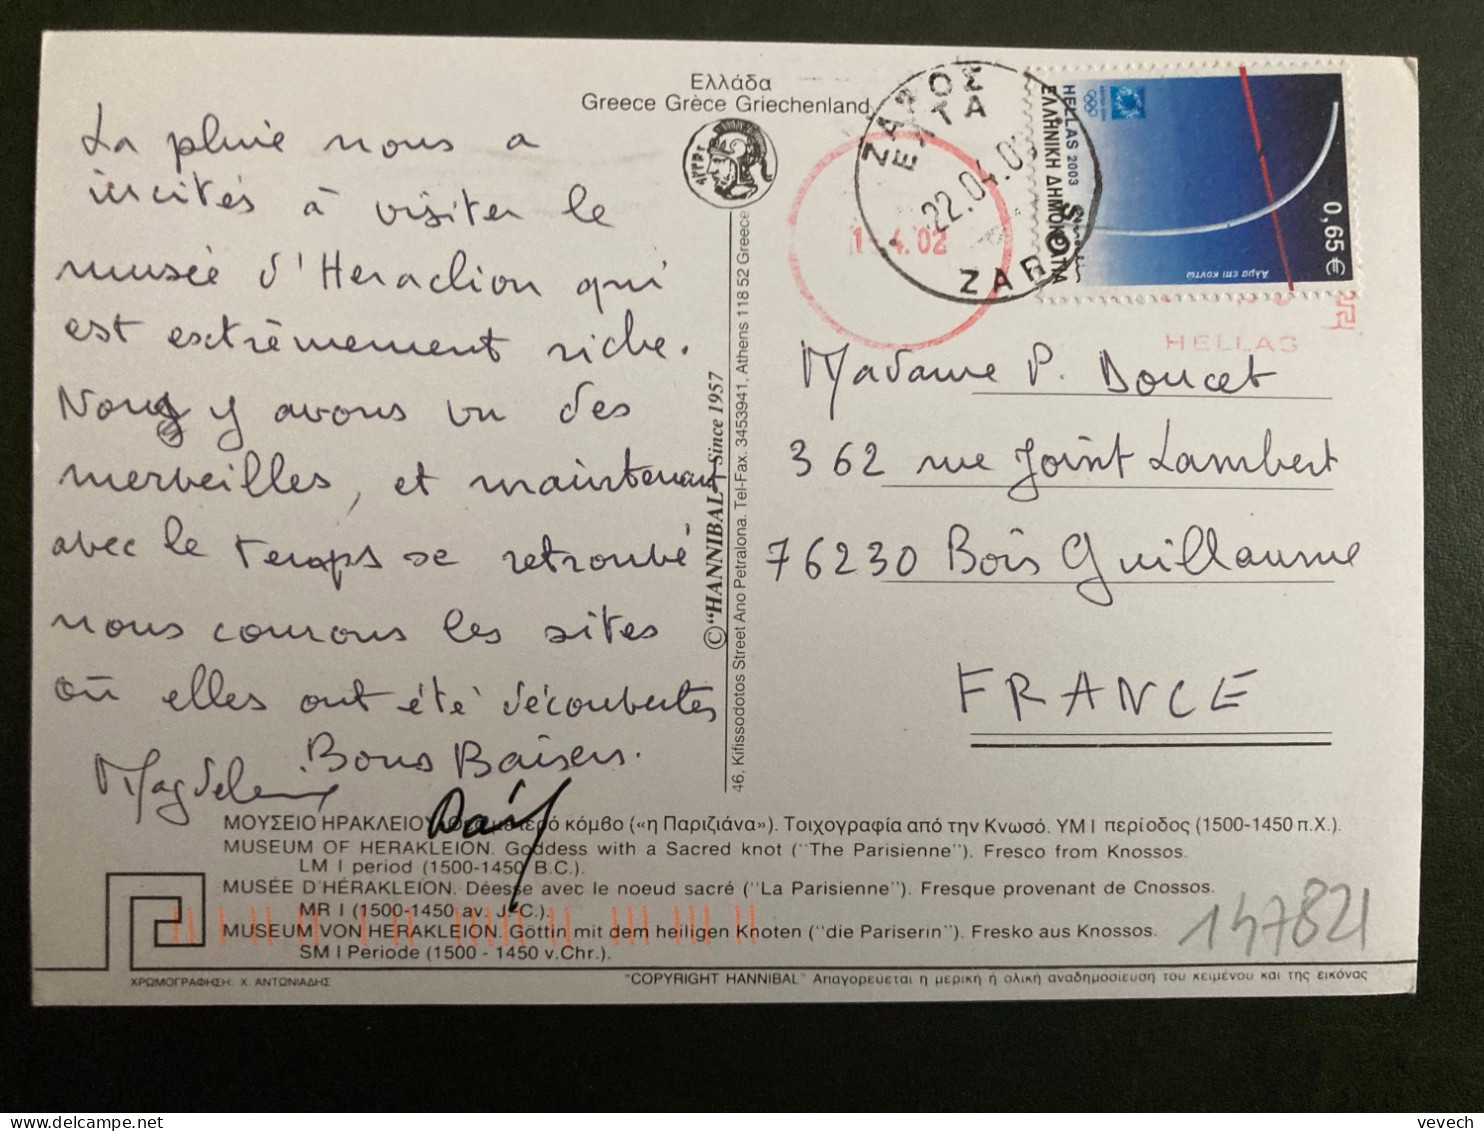 Ελλάδα
Greece Grèce Griechenland
La pluie nous a
incités à visiter le
musée d'Heraclion qui
est extrêmement riche.
Nous y avons vu des
merveilles, et maintenant
avec le temps se retrouvé
nous courons les sites
où elles ont été découvertes
Bons Baisers.
Magdeleine
ΖΑΡΟΣ
22.04.03
ZAROS
1-4.02
HELLAS 2003
ΕΛΛΗΝΙΚΗ ΔΗΜΟΚΡΑΤΙΑ
0,65€
Άλμα επί κοντώ
HELLAS
Madame P. Doucet
362 rue Joint Lambert
76230 Bois Guillaume
FRANCE
©"HANNIBAL" Since 1957
46, Kifissodotos Street Ano Petralona. Tel-Fax. 3453941, Athens 118 52 Greece
ΜΟΥΣΕΙΟ ΗΡΑΚΛΕΙΟΥ. Θεά με ιερό κόμβο («η Παριζιάνα»). Τοιχογραφία από την Κνωσό. ΥΜ Ι περίοδος (1500-1450 π.Χ.).
MUSEUM OF HERAKLEION. Goddess with a Sacred knot ("The Parisienne"). Fresco from Knossos.
LM I period (1500-1450 B.C.).
MUSÉE D'HÉRAKLEION. Déesse avec le noeud sacré ("La Parisienne"). Fresque provenant de Cnossos.
MR I (1500-1450 av. J.-C.).
MUSEUM VON HERAKLEION. Göttin mit dem heiligen Knoten ("die Pariserin"). Fresko aus Knossos.
SM I Periode (1500 - 1450 v.Chr.).
147821
ΧΡΩΜΟΓΡΑΦΗΣΗ: Χ. ΑΝΤΩΝΙΑΔΗΣ
"COPYRIGHT HANNIBAL" Απαγορεύεται η μερική ή ολική αναδημοσίευση του κειμένου και της εικόνας
vevech